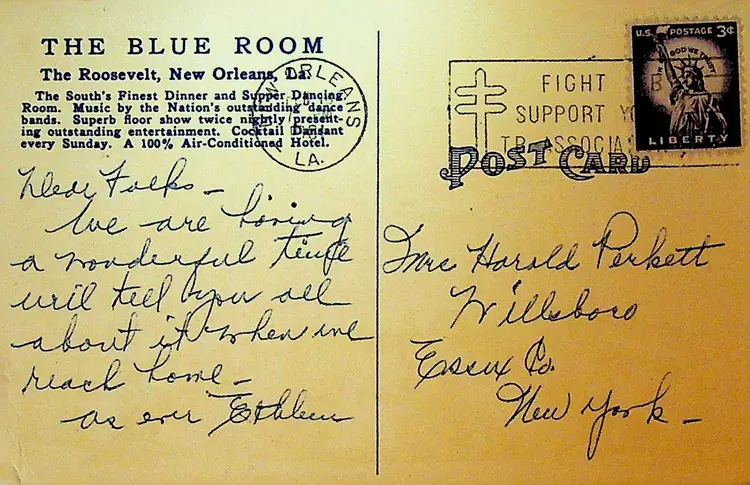 THE BLUE ROOM
The Roosevelt, New Orleans, La.
The South's Finest Dinner and Supper Dancing
Room. Music by the Nation's outstanding dance
bands. Superb floor show twice nightly present-
ing outstanding entertainment. Cocktail Dansant
every Sunday. A 100% Air-Conditioned Hotel.
Dear Folks -
We are having
a wonderful time
will tell you all
about it when we
reach home -
as ever
NEW ORLEANS
LA.
FIGHT
SUPPORT
TB ASSOCIA
U.S. POSTAGE 3¢
IN GOD WE TRUST
LIBERTY
POST CARD
Mrs Harold Perkett
Willsboro
Essex Co.
New York -